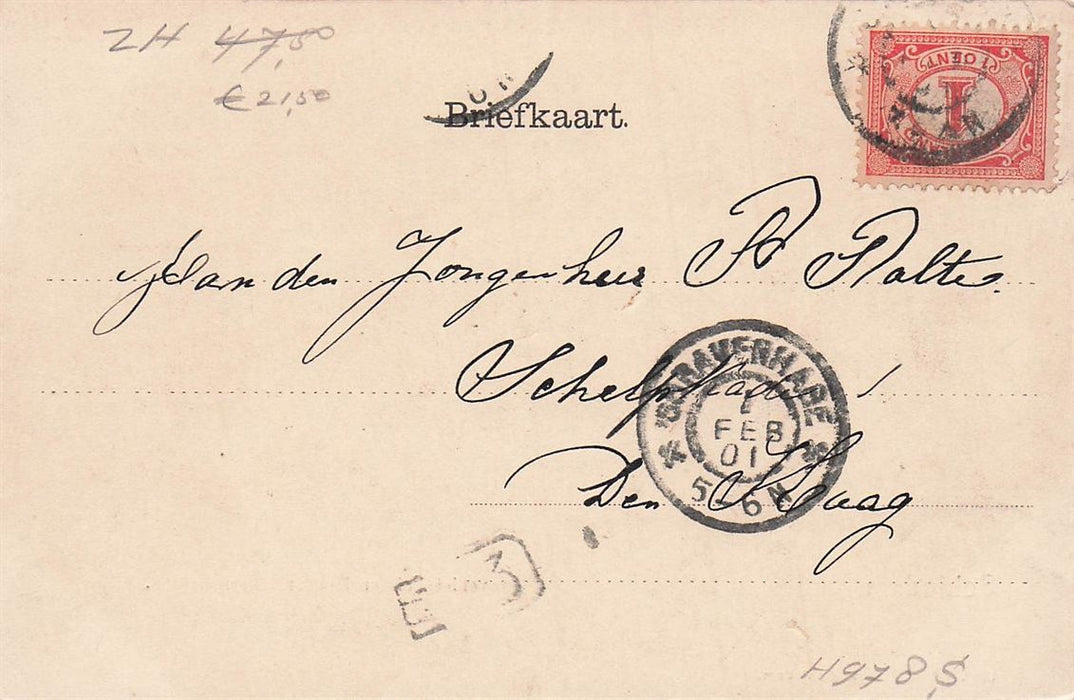 ZH 47,50
€ 21,50
Briefkaart.
1 CENT
1
Aan den Jongenheer P Polte
Schelpkade 1
Den Haag
'S GRAVENHAGE
1
FEB
01
5-6 N
3
E
H978S